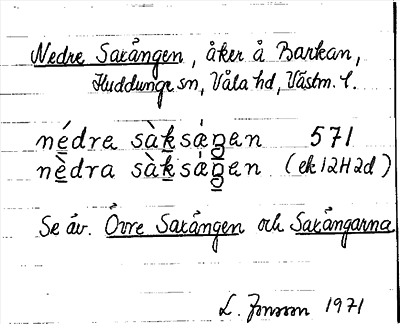 Nedre Saxången, åker å Barkan,
Huddunge sn, Våla hd, Västm. l.
nédre sàksáŋen 571
nèdra sàksáŋen (ek 12H2d)
Se äv. Övre Saxången och Saxångarna
L. Jonsson 1971